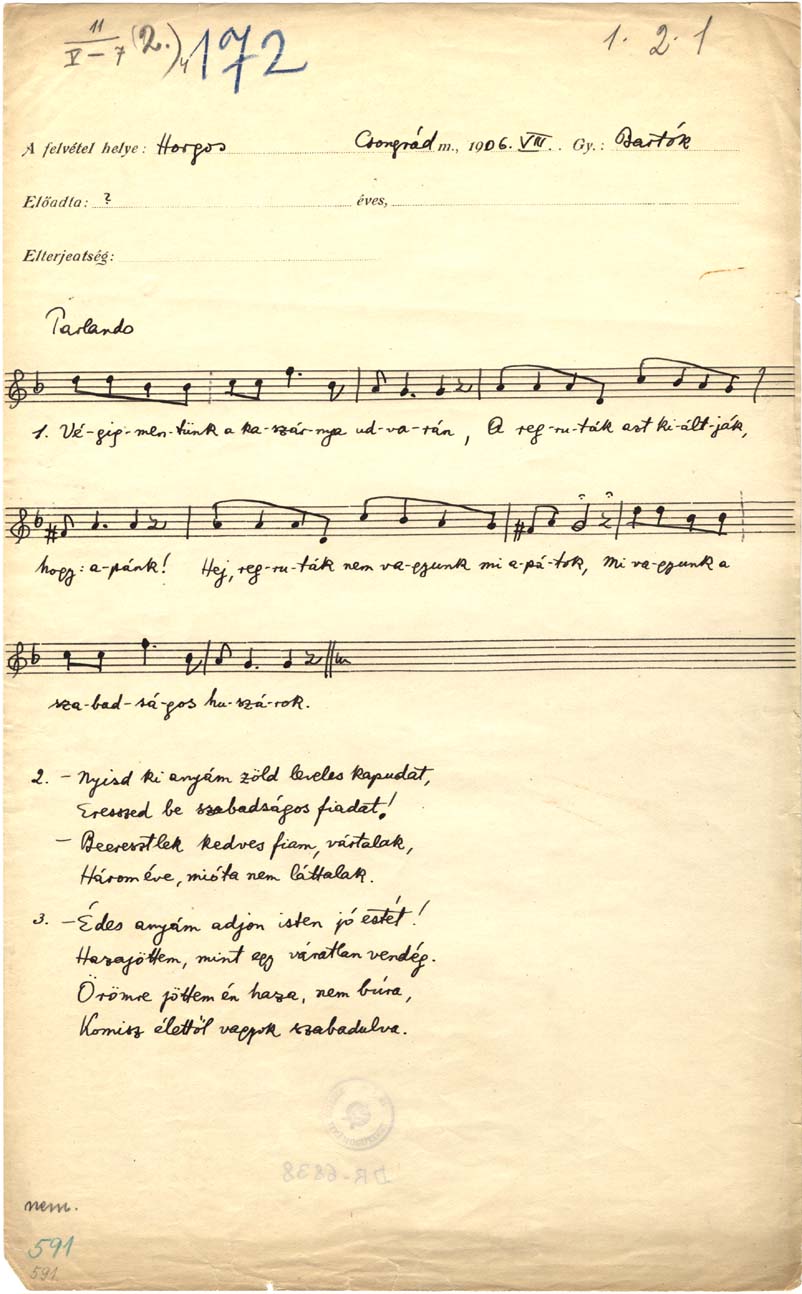 11
V-7 (2.)4 172
1. 2. 1
A felvétel helye: Horgos Csongrád m., 1906. VIII. Gy.: Bartók
Előadta: ? éves,
Elterjeatség:
Parlando
1. Vé-gig-men-tünk a ka-szár-nya ud-va-rán, A reg-ru-ták azt ki-ált-ják,
hogy: a-pánk! Hej, reg-ru-ták nem va-gyunk mi a-pá-tok, Mi va-gyunk a
sza-bad-sá-gos hu-szá-rok.
2. - Nyisd ki anyám zöld leveles kapudat,
Eresszed be szabadságos fiadat!
- Beeresztlek kedves fiam, vártalak,
Három éve, mióta nem láttalak.
3. - Édes anyám adjon isten jó estét!
Hazajöttem, mint egy váratlan vendég.
Örömre jöttem én haza, nem búra,
Komisz élettől vagyok szabadulva.
DR-6838
nem.
591
591.